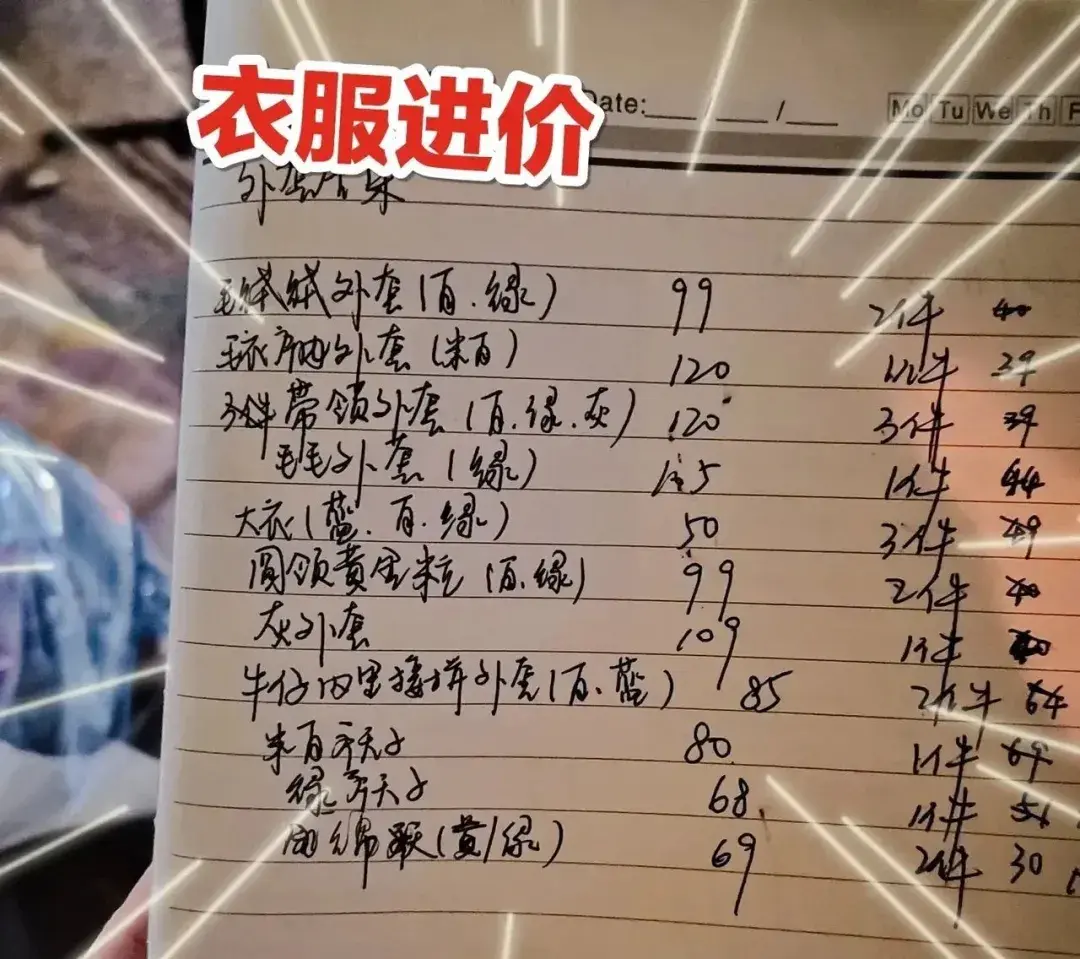 衣服进价
Date: / /
Mo Tu We Th F
外套
毛绒绒外套(白.绿) 99 2件
毛衣 外套(米白) 120 件 39
3件带领外套(白.绿.灰) 120 3件 39
毛毛外套(绿) 1件 44
大衣(蓝.白.绿) 50 3件 49
圆领 (白.绿) 99 2件
灰外套 109 1件
牛仔内里接拼外套(白.蓝) 85 2件 64
米白 80 1件 69
绿 68 1件
(黄/绿) 69 2件 30